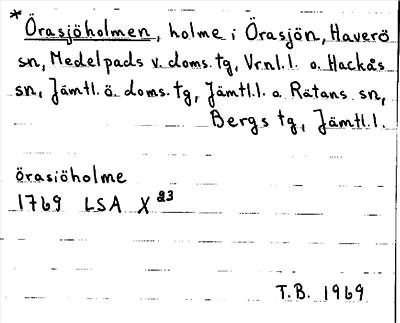 * Örasjöholmen, holme i Örasjön, Haverö
sn, Medelpads v. doms. tg, Vrnl. l. o. Hackås
sn, Jämtl. ö. doms. tg, Jämtl. l. o. Rätans sn,
Bergs tg, Jämtl. l.
örasiöholme
1769 LSA X 23
T.B. 1969